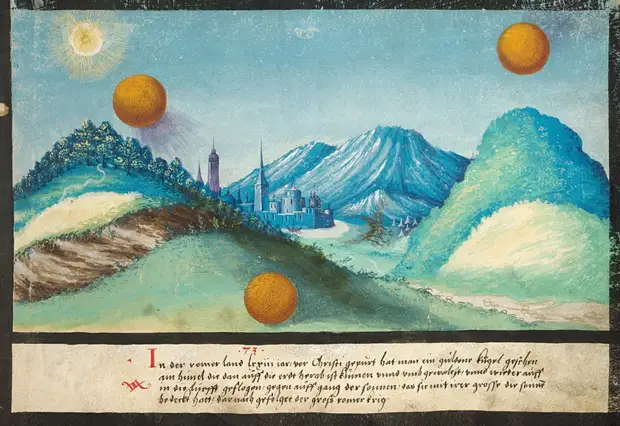 .73.
In der romer land lxxiii iar vor Christi gepurt hat man ein guldene kugel gesehen
am himel die dan auff die erdt herab ist kumen vnnd vmb gewalzt vnnd wider auff
in die lufft geflogen gegen auffgang der sonnen das sie mit irer grosse die sonn
bedeckt hatt darnach gefolget der groß romer krieg